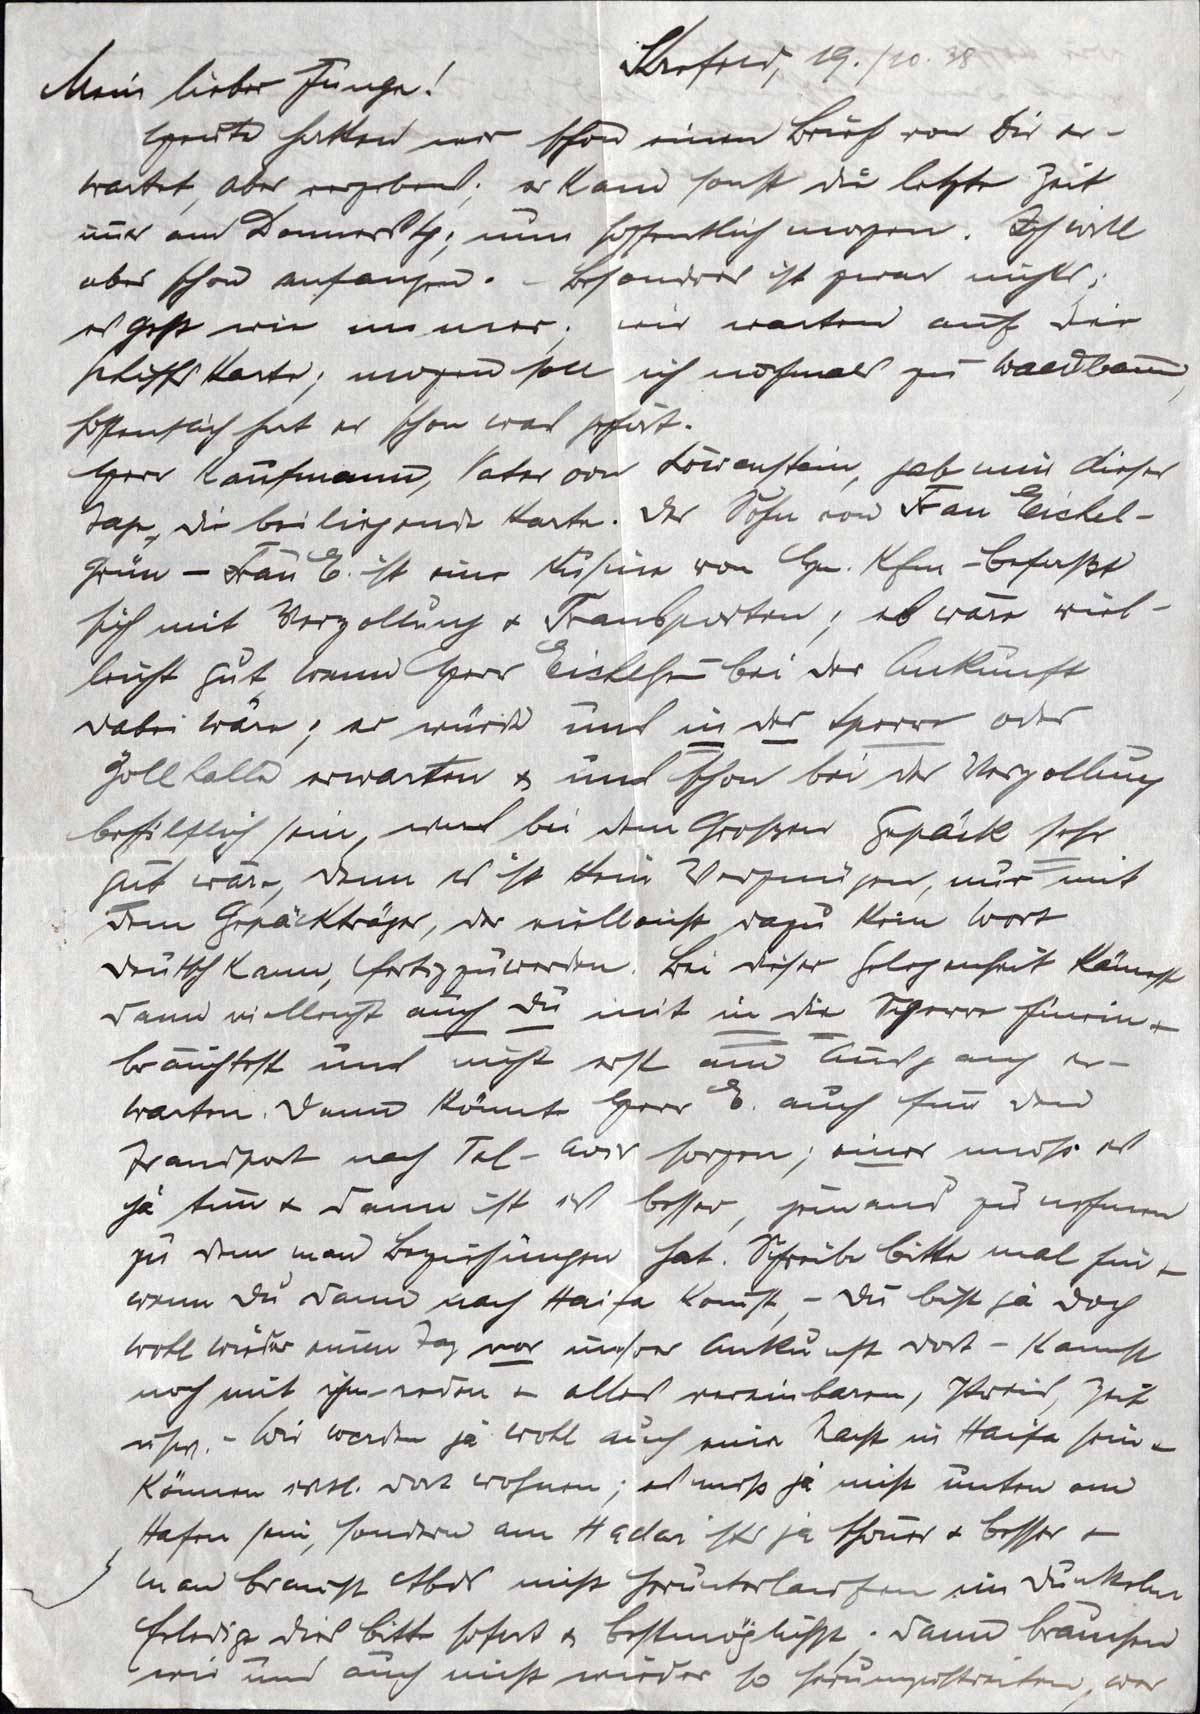 Krefeld, 19./10. 38
Mein lieber Junge!
Heute hatten wir schon einen Brief von Dir er-
wartet, aber vergebens; er kam sonst die letzte Zeit
immer am Donnerstg; nun hoffentlich morgen. Ich will
aber schon anfangen. - Besonderes ist zwar nichts;
es geht wie immer; wir warten auf die
Schiffskarte; morgen soll ich nochmals zu Waldbaum,
hoffentlich hat er schon was gehört.
Herr Kaufmann, Vater von Löwenstein, gab mir dieser
Tage die beiliegende Karte. Der Sohn von Frau Eichel-
grün - Frau E. ist eine Kusine von Hn. Kfm - befaßt
sich mit Verzollung & Transporten; es wäre viel-
leicht gut, wenn Herr Eichelg. bei der Ankunft
dabei wäre; er würde uns in der Sperre oder
Zollhalle erwarten & uns schon bei der Verzollung
behilflich sein, was bei dem Grossen Gepäck sehr
gut wäre, denn es ist kein Vergnügen, nur mit
dem Gepäckträger, der vielleicht dazu kein Wort
deutsch kann, fertigzuwerden. Bei dieser Gelegenheit kämst
dann vielleicht auch Du mit in die Sperre hinein &
bräuchtest uns nicht erst am Ausgang er-
warten. Dann könnte Herr E. auch für den
Transport nach Tel-Aviv sorgen; einer muss es
ja tun & dann ist es besser, jemand zu nehmen
zu dem man Beziehungen hat. Schreibe bitte mal hin &
wenn Du dann nach Haifa komst, - Du bist ja doch
wohl wieder einen Tag vor unserer Ankunft dort - kannst
noch mit ihm reden & alles vereinbaren, Preis, Zeit
usw. - Wir werden ja wohl auch eine Nacht in Haifa sein &
können evtl. dort wohnen; es muss ja nicht unten am
Hafen sein, sondern am Hadar ists ja schöner & besser &
man braucht Abds nicht herunterlaufen im Dunkeln
Erledige dies bitte sofort & bestmöglichst. Dann brauchen
wir uns auch nicht wieder so herumzustreiten, wer